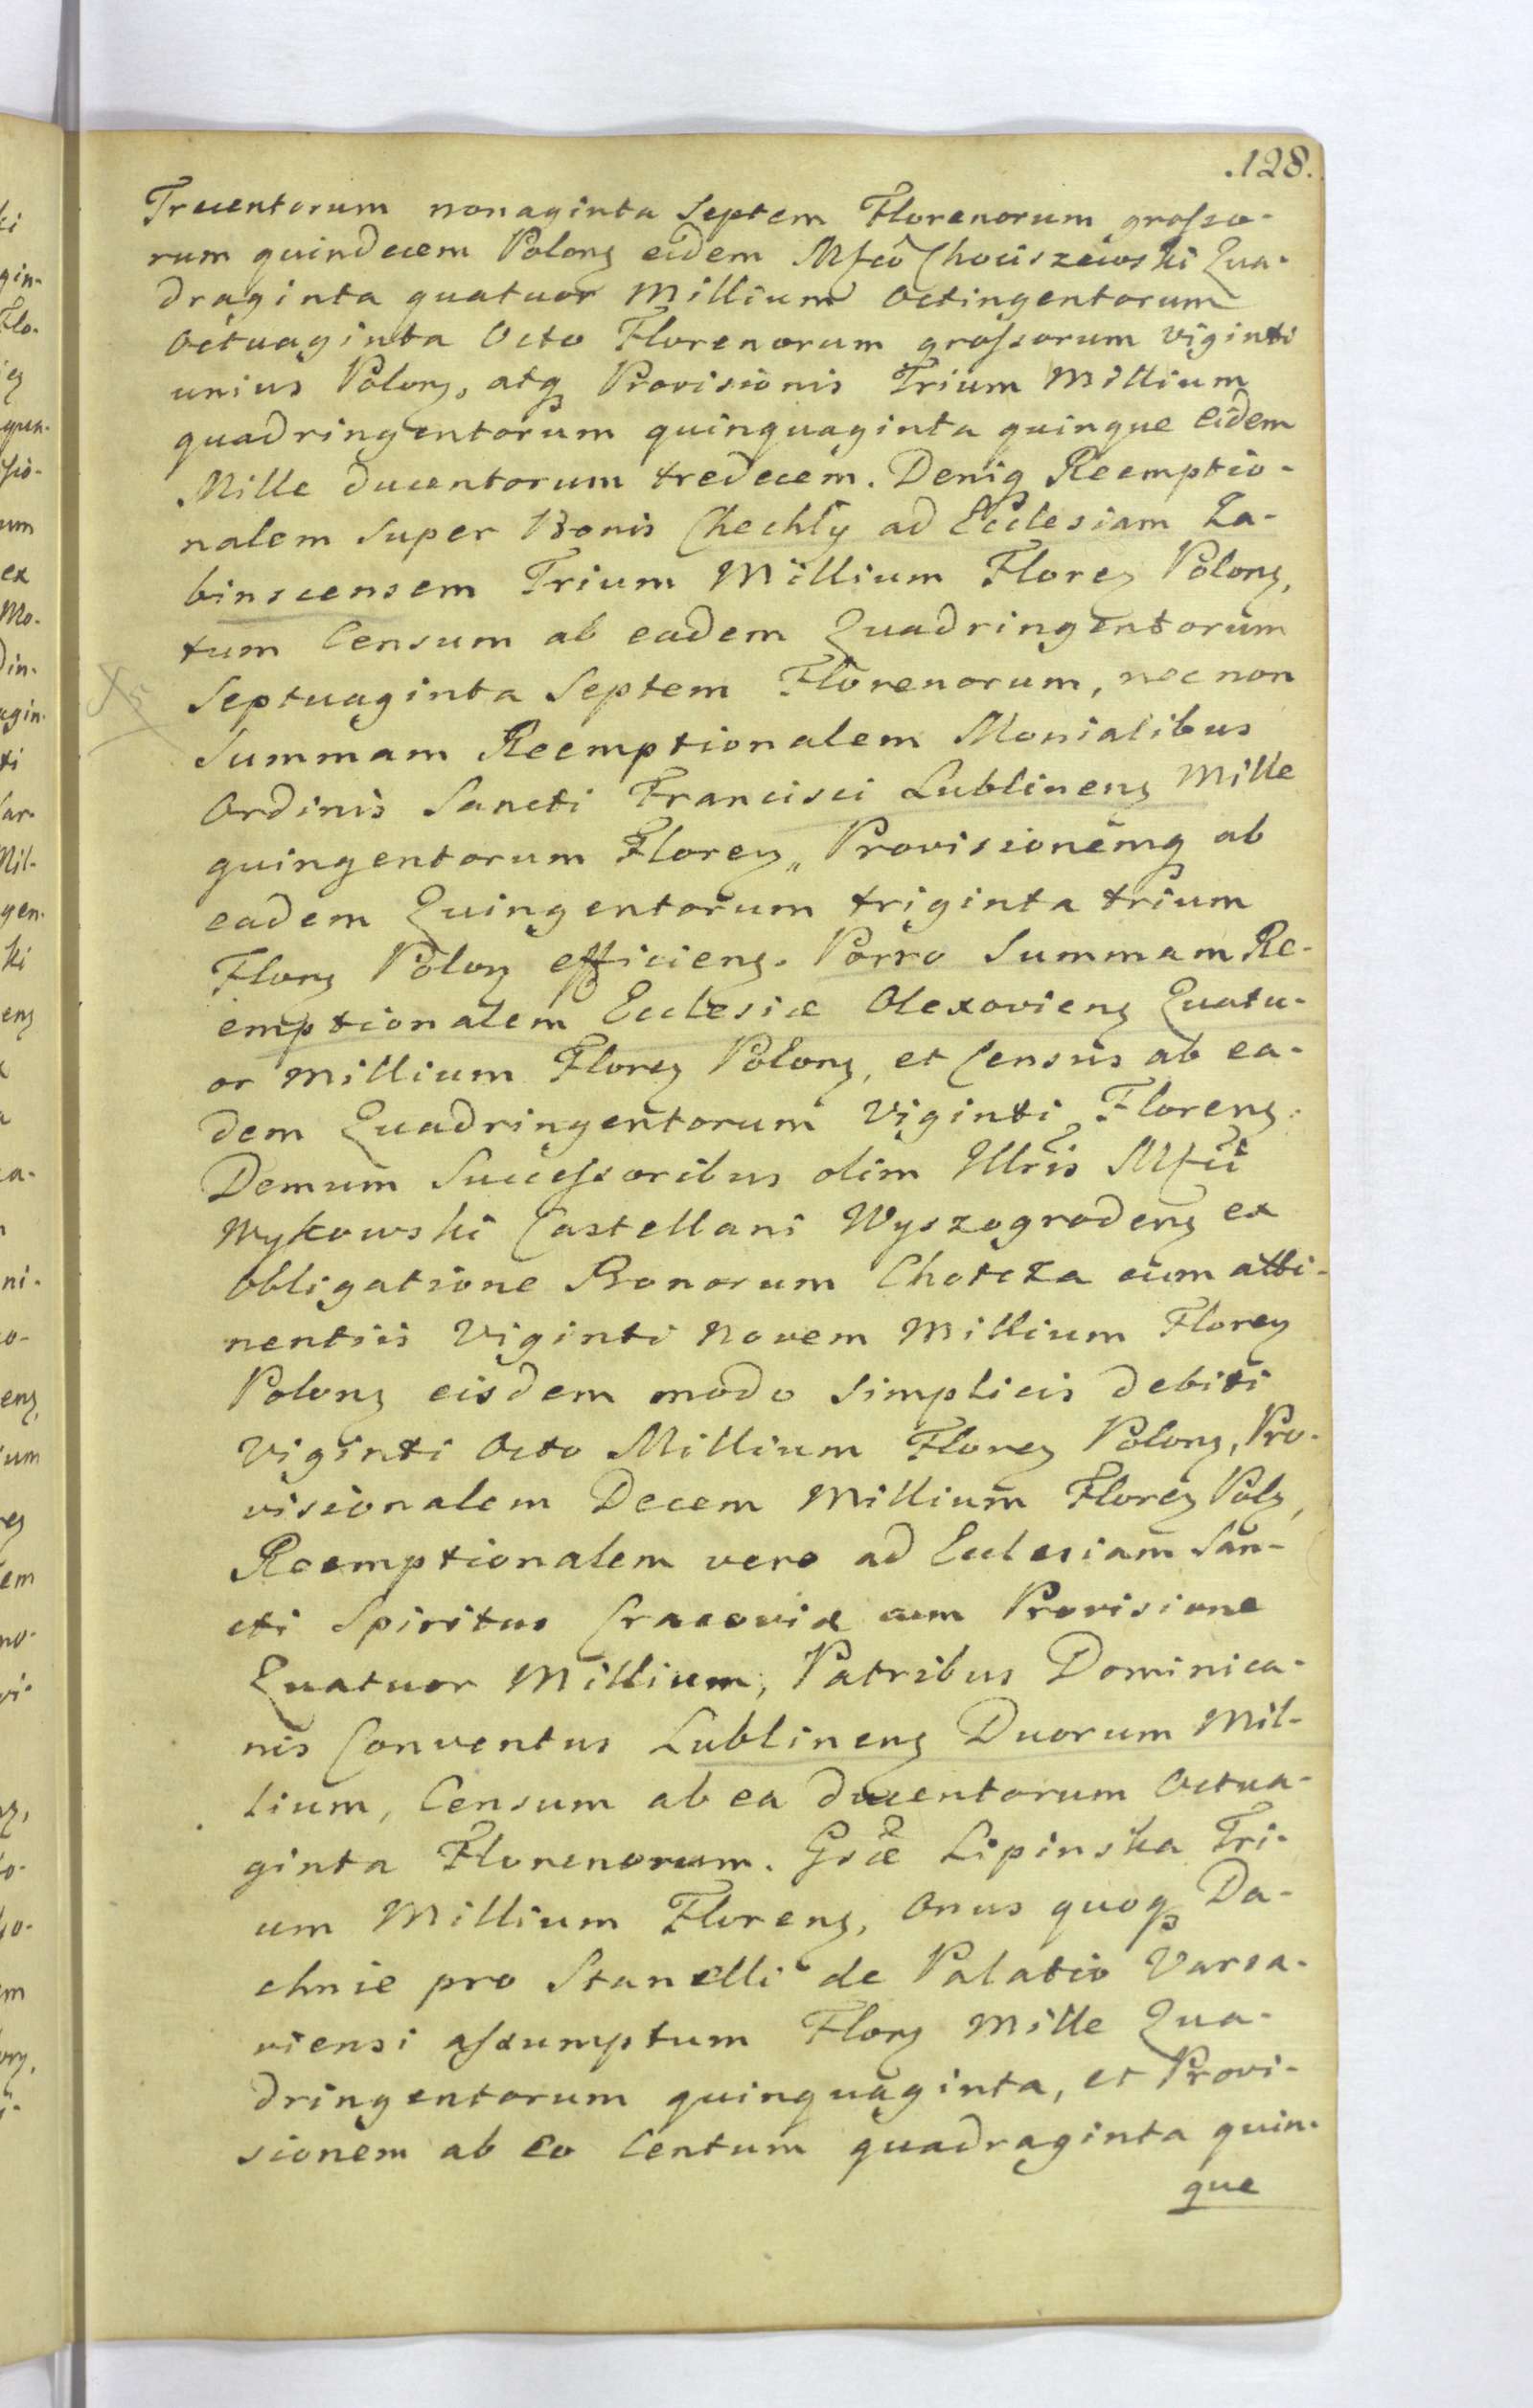 .128.
Trecentorum nonaginta Septem Florenorum grosso-
rum quindecem Polonꝫ eidem Mfco Chociszewski Qua-
draginta quatuor Millium Octingentorum
Octuaginta Octo Florenorum grossorum viginti
unius Polonꝫ, atqꝫ Provisionis Trium Millium
quadringentorum quinquaginta quinque eidem
Mille ducentorum tredecem. Deniqꝫ Reemptio-
nalem Super Bonis Chechły ad Ecclesiam Ła-
binscensem Trium Millium Floreꝫ Polonꝫ,
tum Censum ab eadem Quadringentorum
Septuaginta Septem Florenorum, nec non
Summam Reemptionalem Monialibus
Ordinis Sancti Francisci Lublinenꝫ Mille
quingentorum Florenꝫ, Provisionemqꝫ ab
eadem Quingentorum triginta trium
Florꝫ Polonꝫ efficienꝫ. Porro Summam Re-
emptionalem Ecclesiæ Olexovienꝫ Quatu-
or Millium Floreꝫ Polonꝫ, et Census ab ea-
dem Quadringentorum Viginti Florenꝫ.
Demum Successoribus olim Illris Mfci
Mykowski Castellani Wyszogrodenꝫ ex
Obligatione Bonorum Chotcza cum atti-
nentiis Viginti Novem Millium Florenꝫ
Polonꝫ eisdem modo Simplicis debiti
Viginti Octo Millium Floreꝫ Polonꝫ, Pro-
visionalem Decem Millium Floreꝫ Polꝫ,
Reemptionalem vero ad Ecclesiam San-
cti Spiritus Cracoviæ cum Provisione
Quatuor Millium, Patribus Dominica-
nis Conventus Lublinenꝫ Duorum Mil-
lium, Censum ab ea ducentorum Octua-
ginta Florenorum. Gsæ Lipinska Tri-
um Millium Florenꝫ, Onus quoqꝫ Da-
chnie pro Stanelli de Palatio Varsa-
viensi assumptum Florꝫ Mille Qua-
dringentorum quinquaginta, et Provi-
sionem ab eo Centum quadraginta quin-
que